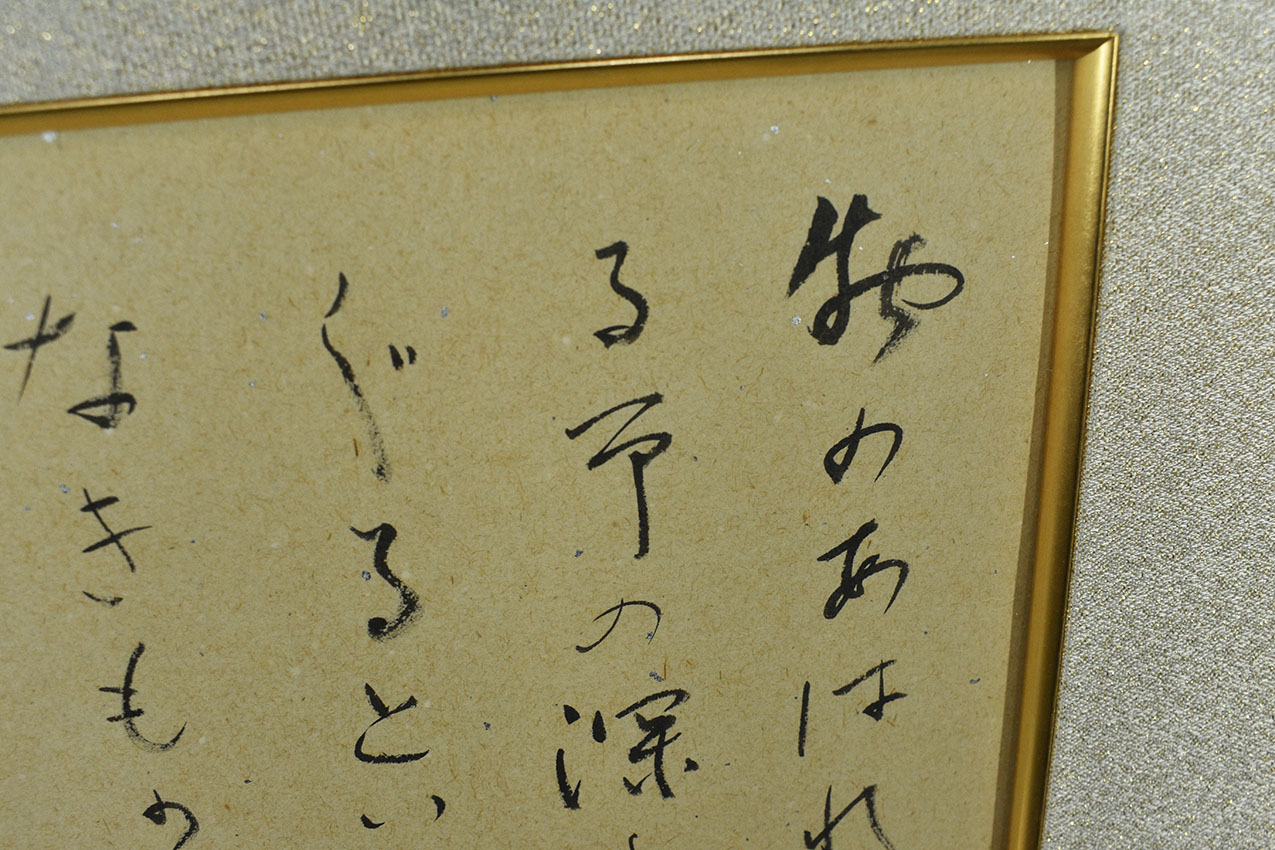 物のあはれ
る市の深
ぐるとい
なきもの